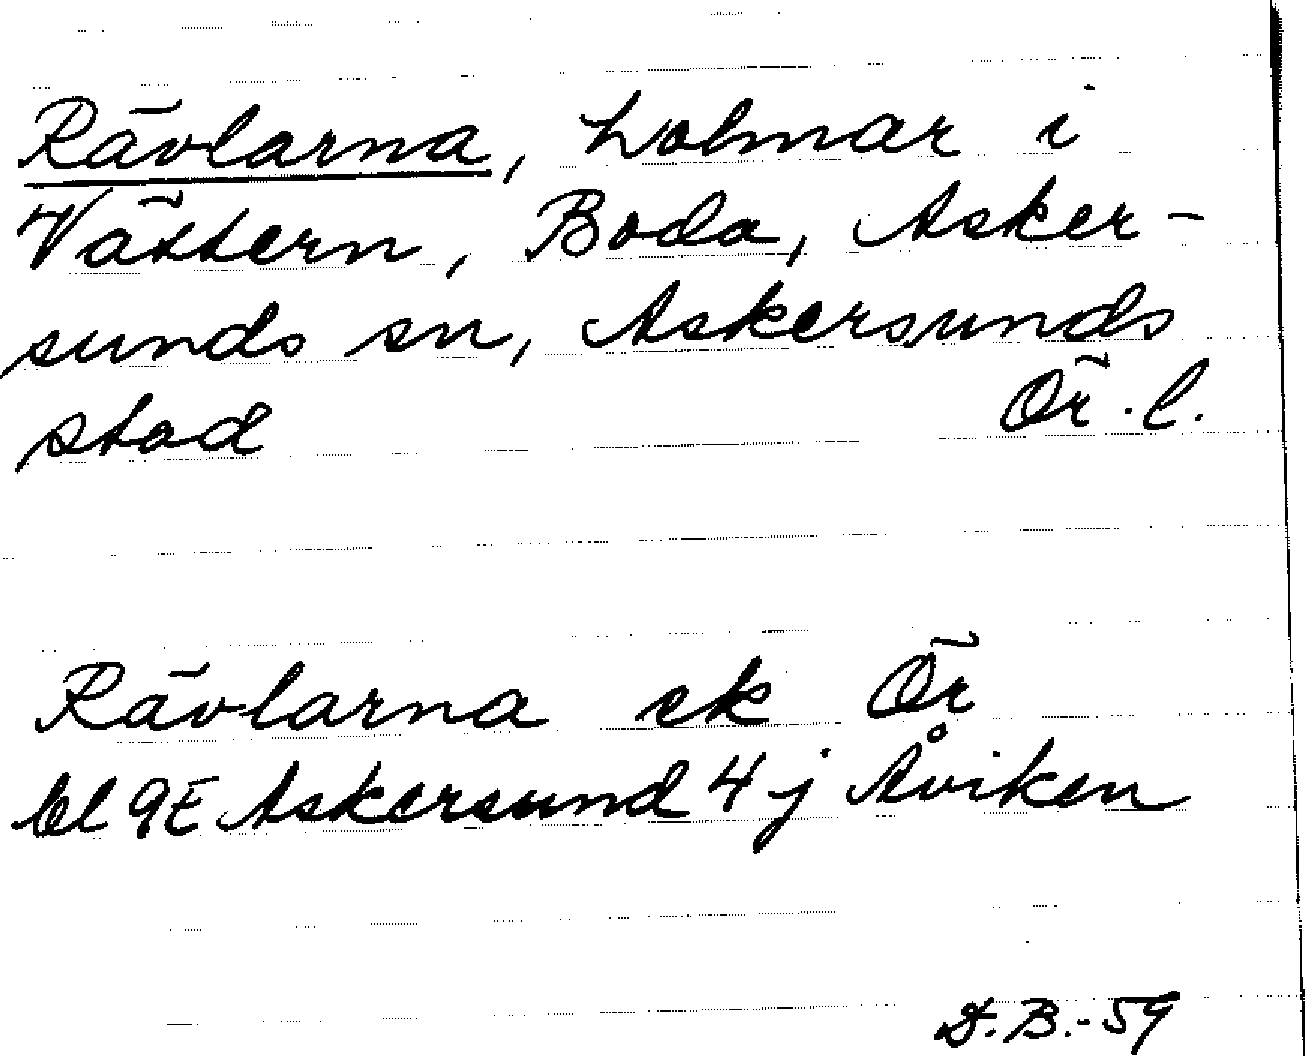 Rävlarna, holmar i
Vättern, Boda, Asker-
sunds sn, Askersunds
stad Ör. l.
Rävlarna ek Ör
bl 9E Askersund 4 j Åviken
D.B.-59